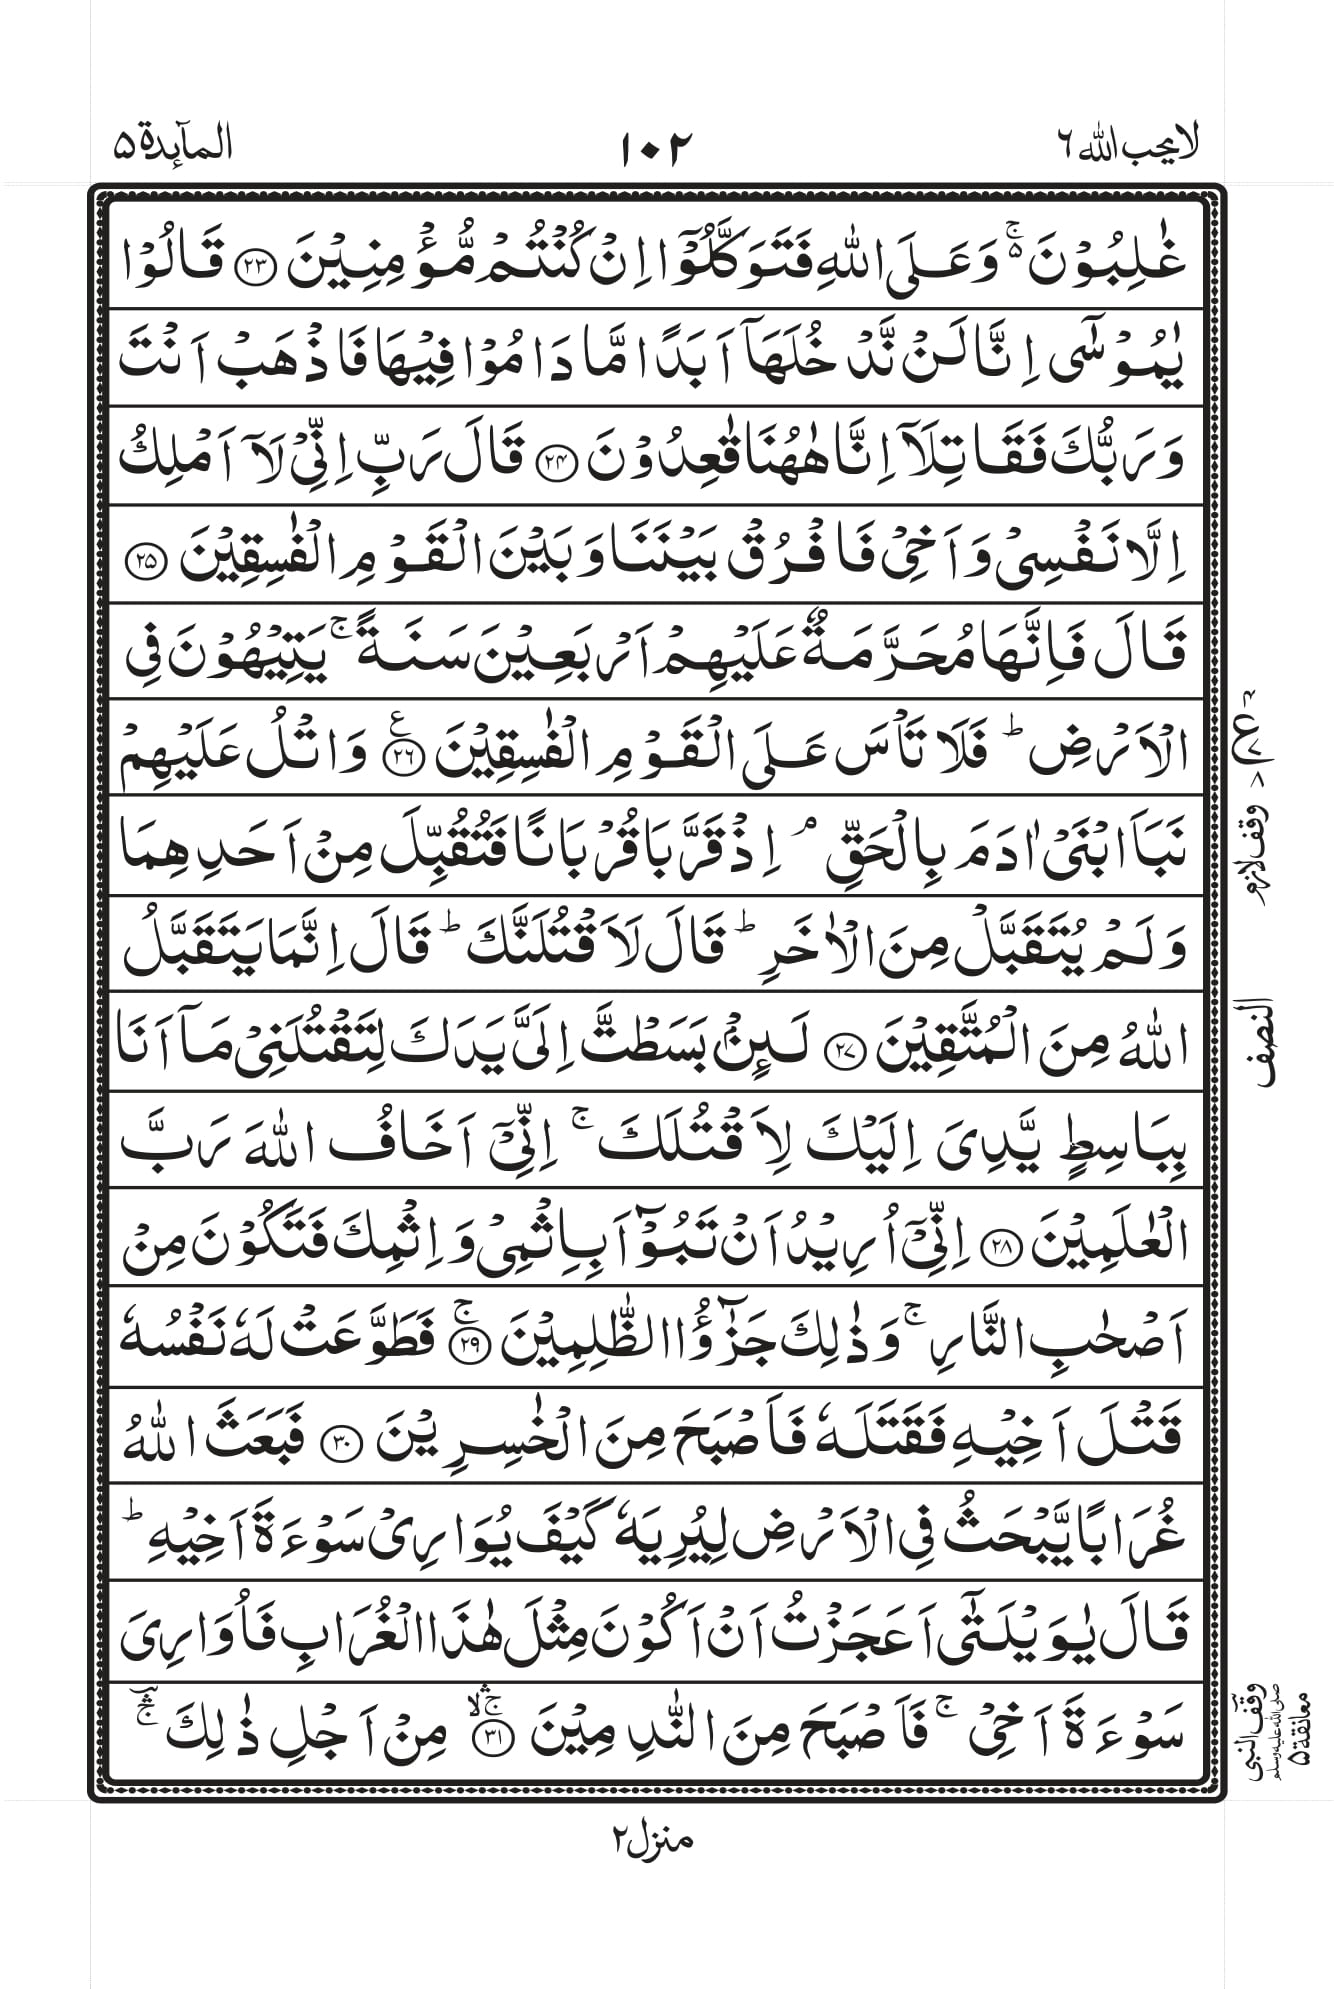 لا يحب الله ٦
١٠٢
المآىِٕدة ۵
غٰلِبُوْنَ ۚ۬ وَعَلَى اللّٰهِ فَتَوَكَّلُوْۤا اِنْ كُنْتُمْ مُّؤْمِنِيْنَ ﴿۲۳﴾ قَالُوْا
يٰمُوْسٰۤى اِنَّا لَنْ نَّدْخُلَهَاۤ اَبَدًا مَّا دَامُوْا فِيْهَا فَاذْهَبْ اَنْتَ
وَرَبُّكَ فَقَاتِلَاۤ اِنَّا هٰهُنَا قٰعِدُوْنَ ﴿۲۴﴾ قَالَ رَبِّ اِنِّيْ لَاۤ اَمْلِكُ
اِلَّا نَفْسِيْ وَاَخِيْ فَافْرُقْ بَيْنَنَا وَبَيْنَ الْقَوْمِ الْفٰسِقِيْنَ ﴿۲۵﴾
قَالَ فَاِنَّهَا مُحَرَّمَةٌ عَلَيْهِمْ اَرْبَعِيْنَ سَنَةً ۚ يَتِيْهُوْنَ فِي
الْاَرْضِ ؕ فَلَا تَاْسَ عَلَى الْقَوْمِ الْفٰسِقِيْنَ ﴿۲۶﴾ ع وَاتْلُ عَلَيْهِمْ
نَبَاَ ابْنَيْ اٰدَمَ بِالْحَقِّ ۘ اِذْ قَرَّبَا قُرْبَانًا فَتُقُبِّلَ مِنْ اَحَدِهِمَا
وَلَمْ يُتَقَبَّلْ مِنَ الْاٰخَرِ ؕ قَالَ لَاَقْتُلَنَّكَ ؕ قَالَ اِنَّمَا يَتَقَبَّلُ
اللّٰهُ مِنَ الْمُتَّقِيْنَ ﴿۲۷﴾ لَىِٕنْۢ بَسَطْتَّ اِلَيَّ يَدَكَ لِتَقْتُلَنِيْ مَاۤ اَنَا
بِبَاسِطٍ يَّدِيَ اِلَيْكَ لِاَقْتُلَكَ ۚ اِنِّيْۤ اَخَافُ اللّٰهَ رَبَّ
الْعٰلَمِيْنَ ﴿۲۸﴾ اِنِّيْۤ اُرِيْدُ اَنْ تَبُوْٓاَ بِاِثْمِيْ وَاِثْمِكَ فَتَكُوْنَ مِنْ
اَصْحٰبِ النَّارِ ۚ وَذٰلِكَ جَزٰٓؤُا الظّٰلِمِيْنَ ﴿۲۹﴾ ۚ فَطَوَّعَتْ لَهٗ نَفْسُهٗ
قَتْلَ اَخِيْهِ فَقَتَلَهٗ فَاَصْبَحَ مِنَ الْخٰسِرِيْنَ ﴿۳۰﴾ فَبَعَثَ اللّٰهُ
غُرَابًا يَّبْحَثُ فِي الْاَرْضِ لِيُرِيَهٗ كَيْفَ يُوَارِيْ سَوْءَةَ اَخِيْهِ ؕ
قَالَ يٰوَيْلَتٰۤى اَعَجَزْتُ اَنْ اَكُوْنَ مِثْلَ هٰذَا الْغُرَابِ فَاُوَارِيَ
سَوْءَةَ اَخِيْ ۚ فَاَصْبَحَ مِنَ النّٰدِمِيْنَ ﴿۳۱﴾ ۚۛۙ مِنْ اَجْلِ ذٰلِكَ ۚۛؔ
ع
وقف لازم
النصف
وقف النبي صلى الله عليه وسلم
معانقة ۵
منزل ۲